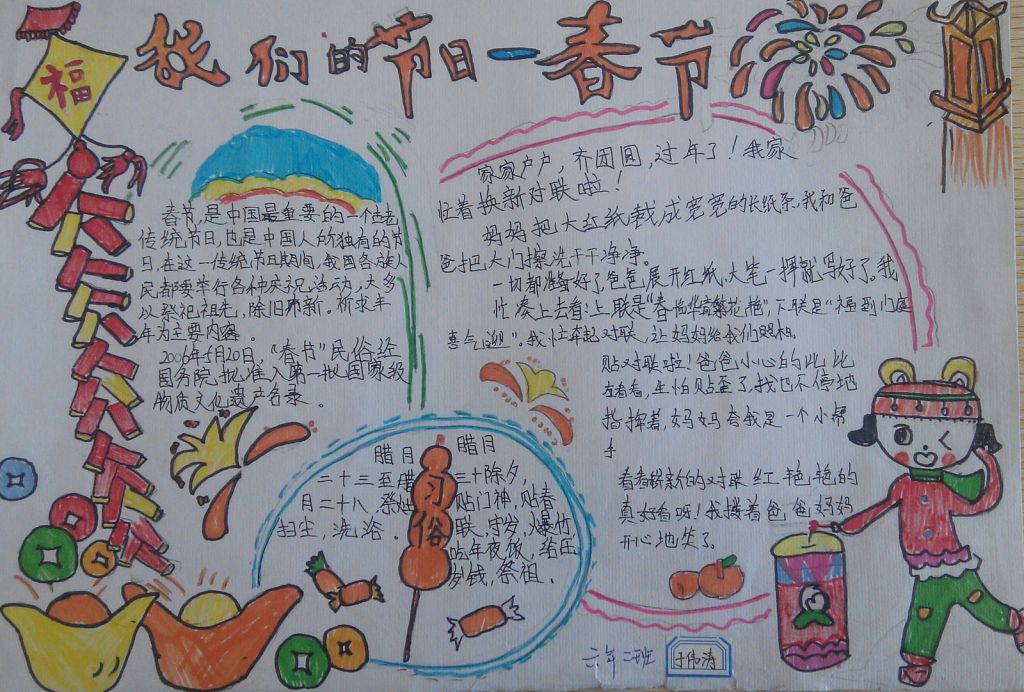 我们的节日一春节
福
春节,是中国最重要的一个古老
传统节日,也是中国人所独有的节
日,在这一传统节日期间,我国各族人
民都要举行各种庆祝活动,大多
以祭祀祖先,除旧布新。祈求丰
年为主要内容。
2006年5月20日,“春节”民俗经
国务院批准入第一批国家级
物质文化遗产名录。
家家户户,齐团圆,过年了!我家
忙着换新对联啦!
妈妈把大红纸裁成宽宽的长纸条,我和爸
爸把大门擦洗干干净净。
一切都准备好了,爸爸展开红纸,大笔一挥就写好了。我
忙凑上去看:上联是“春怡华富繁花艳”,下联是“福到门庭
喜气迎”。我忙举起对联,让妈妈给我们照相。
贴对联啦!爸爸小心的比比
看看,生怕贴歪了,我也不停地
指挥着,妈妈夸我是一个小帮
手
看着崭新的对联红艳艳的
真好看呀!我搂着爸爸妈妈
开心地笑了。
习俗
腊月
二十三至腊
月二十八,祭灶
扫尘,洗浴。
腊月
三十除夕,
贴门神,贴春
联,守岁,爆竹,
吃年夜饭,给压
岁钱,祭祖.
六年二班
于伟涛